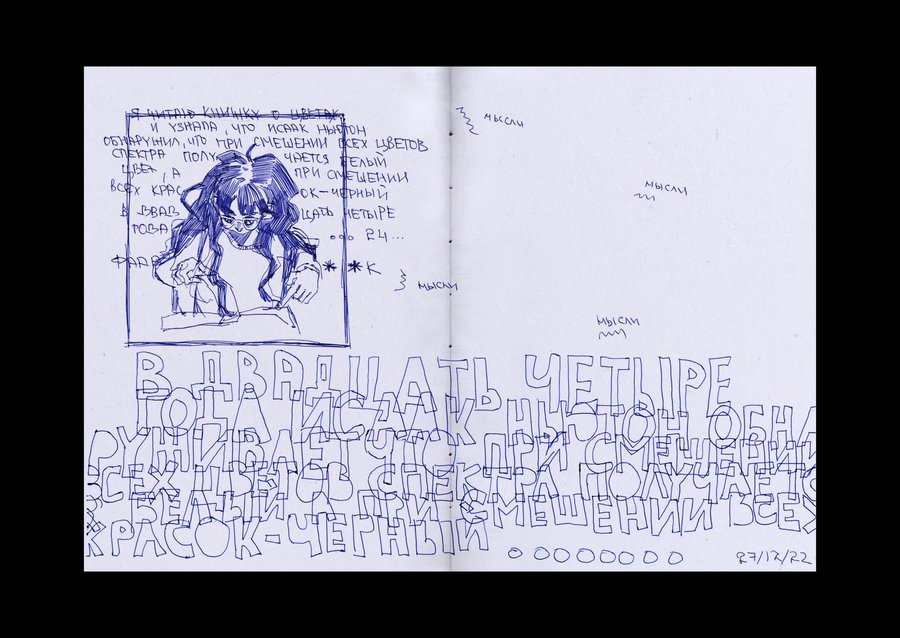 Я ЧИТАЮ КНИЖКУ О ЦВЕТАХ
И УЗНАЛА, ЧТО ИСААК НЬЮТОН
ОБНАРУЖИЛ, ЧТО ПРИ СМЕШЕНИИ ВСЕХ ЦВЕТОВ
СПЕКТРА ПОЛУЧАЕТСЯ БЕЛЫЙ
ЦВЕТ, А ПРИ СМЕШЕНИИ
ВСЕХ КРАСОК-ЧЁРНЫЙ
В ДВАДЦАТЬ ЧЕТЫРЕ
ГОДА
... 24...
**К
МЫСЛИ
МЫСЛИ
МЫСЛИ
МЫСЛИ
В ДВАДЦАТЬ ЧЕТЫРЕ
ГОДА ИСААК НЬЮТОН ОБНА
РУЖИВАЕТ ЧТО ПРИ СМЕШЕНИИ
ВСЕХ ЦВЕТОВ СПЕКТРА ПОЛУЧАЕТС
БЕЛЫЙ А ПРИ СМЕШЕНИИ ВСЕХ
КРАСОК-ЧЕРНЫЙ
27/12/22